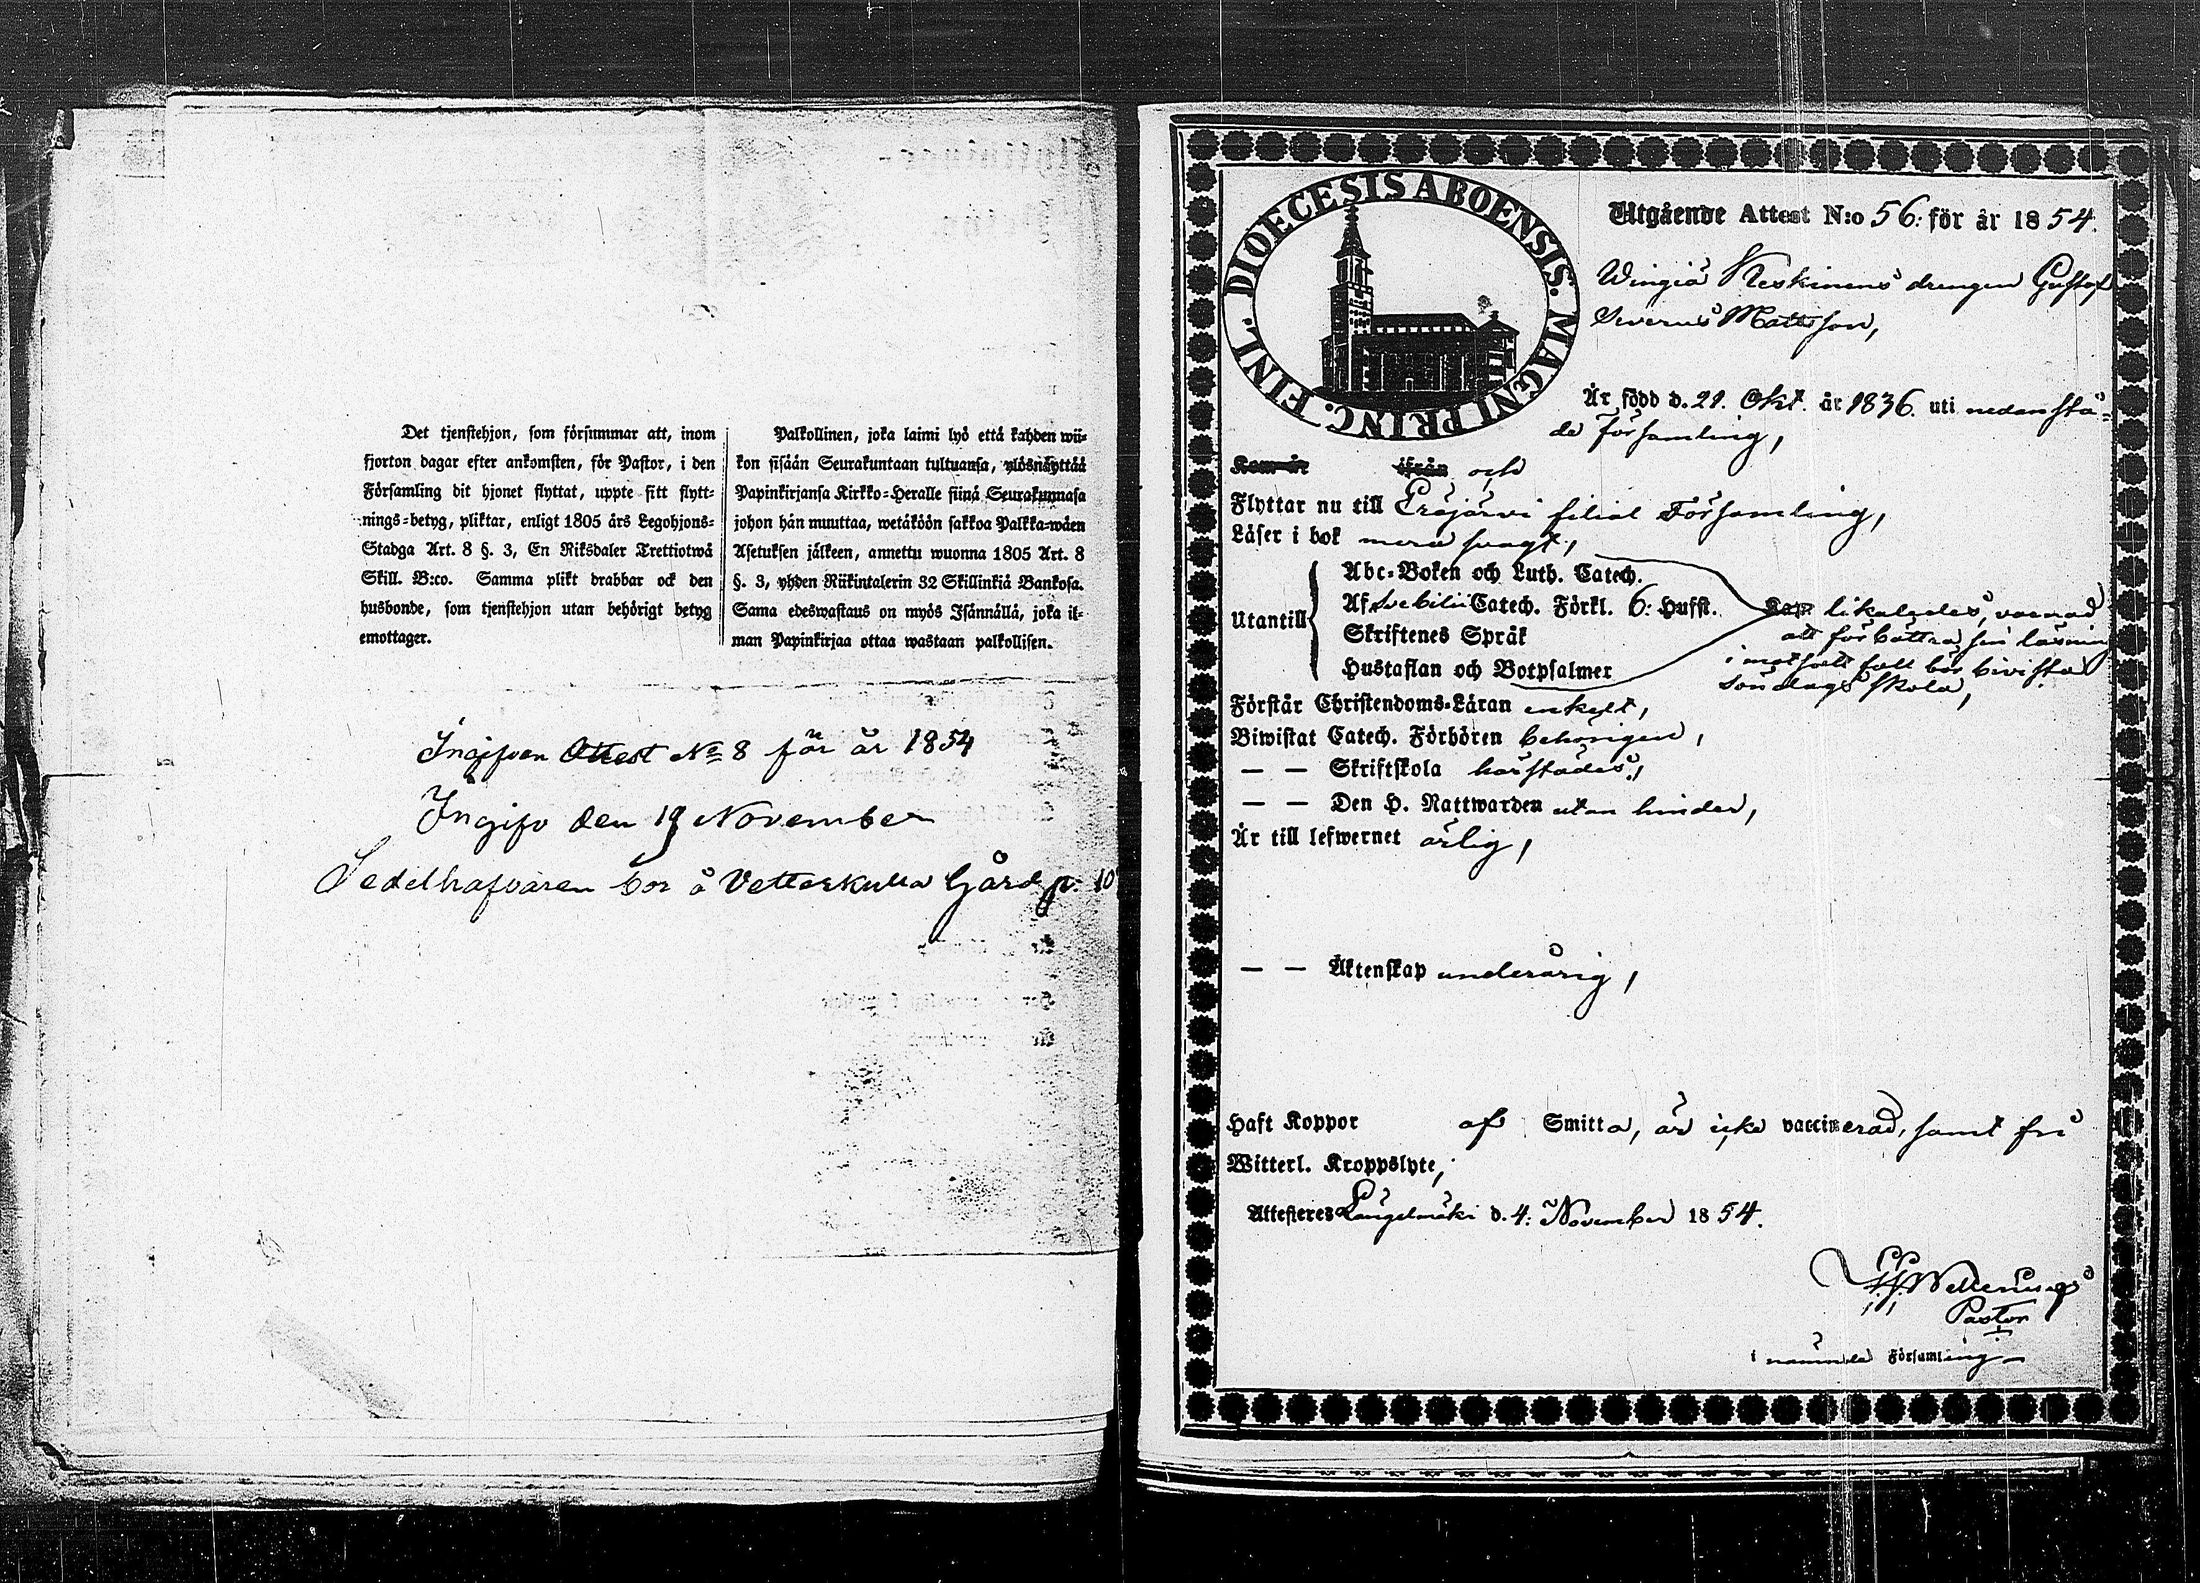 Det tjenstehjon, som försummar att, inom
fjorton dagar efter ankomsten, för Pastor, i den
Församling dit hjonet flyttat, uppte sitt flytt-
nings-betyg, pliktar, enligt 1805 års Legohjons-
Stadga Art. 8 §. 3, En Riksdaler Trettiotwå
Skill. B:co. Samma plikt drabbar ock den
husbonde, som tjenstehjon utan behörigt betyg
emottager.
Palkollinen, joka laimi lyö että kahden wii-
kon sisään Seurakuntaan tultuansa, ylösnäyttää
Papinkirjansa Kirkko-Heralle siinä Seurakunnasa
johon hän muuttaa, wetäköön sakkoa Palkka-wäen
Asetuksen jälkeen, annettu wuonna 1805 Art. 8
§. 3, yhden Riikintalerin 32 Skillinkiä Bankosa.
Sama edeswastaus on myös Isännällä, joka il-
man Papinkirjaa ottaa wastaan palkollisen.
Ingifven Attest No 8 för år 1854
Ingifv den 19 November
Sedelhafvaren bor å Vetterkulla Gård p. 10
DIOECESIS ABOENSIS. MAGNI PRINC. FINL.
Utgående Attest N:o 56: för år 1854.
Wingiä Keskinens drengen Gustaf
Severus Mattsson,
Är född d. 21. Okt. år 1836. uti nedanstå-
de församling,
Kom år ifrån och
Flyttar nu till Eräjärvi filial Församling,
Läser i bok mera svagt,
Utantill
Abc-Boken och Luth. Catech.
Af Svebilii Catech. Förkl. 6: Hufst.
Skriftenes Språk
Hustaflan och Botpsalmer
likaledes, varnad
att förbättra sin läsning
i motsatt fall bör bivista
söndags skola,
Förstår Christendoms-Läran enkelt,
Biwistat Catech. Förhören behörigen,
— — Skriftskola härstädes,
— — Den H. Nattwarden utan hinder,
Är till lefwernet ärlig,
— — Äktenskap underårig,
Haft Koppor af Smitta, är icke vaccinerad, samt fri
Witterl. Kroppslyte,
Attesteres Längelmäki d. 4: November 1854.
Pastor
i nämnde Församling